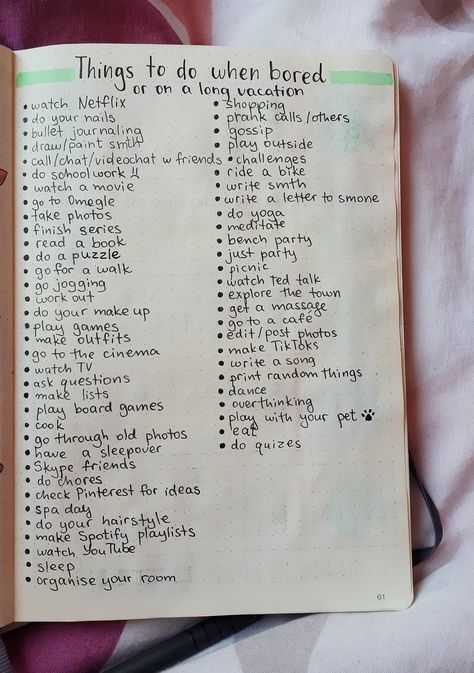 Things to do when bored
or on a long vacation
• watch Netflix
• do your nails
• bullet journaling
• draw/paint smth
• call/chat/videochat w friends
• do schoolwork !!
• watch a movie
• go to Omegle
• take photos
• finish series
• read a book
• do a puzzle
• go for a walk
• go jogging
• work out
• do your make up
• play games
• make outfits
• go to the cinema
• watch TV
• ask questions
• make lists
• play board games
• cook
• go through old photos
• have a sleepover
• Skype friends
• do chores
• check Pinterest for ideas
• spa day
• do your hairstyle
• make Spotify playlists
• watch YouTube
• sleep
• organise your room
• shopping
• prank calls/others
• gossip
• play outside
• challenges
• ride a bike
• write smth
• write a letter to smone
• do yoga
• meditate
• bench party
• just party
• picnic
• watch Ted talk
• explore the town
• get a massage
• go to a café
• edit/post photos
• make TikToks
• write a song
• print random things
• dance
• overthinking
• play with your pet
• eat
• do quizes
61